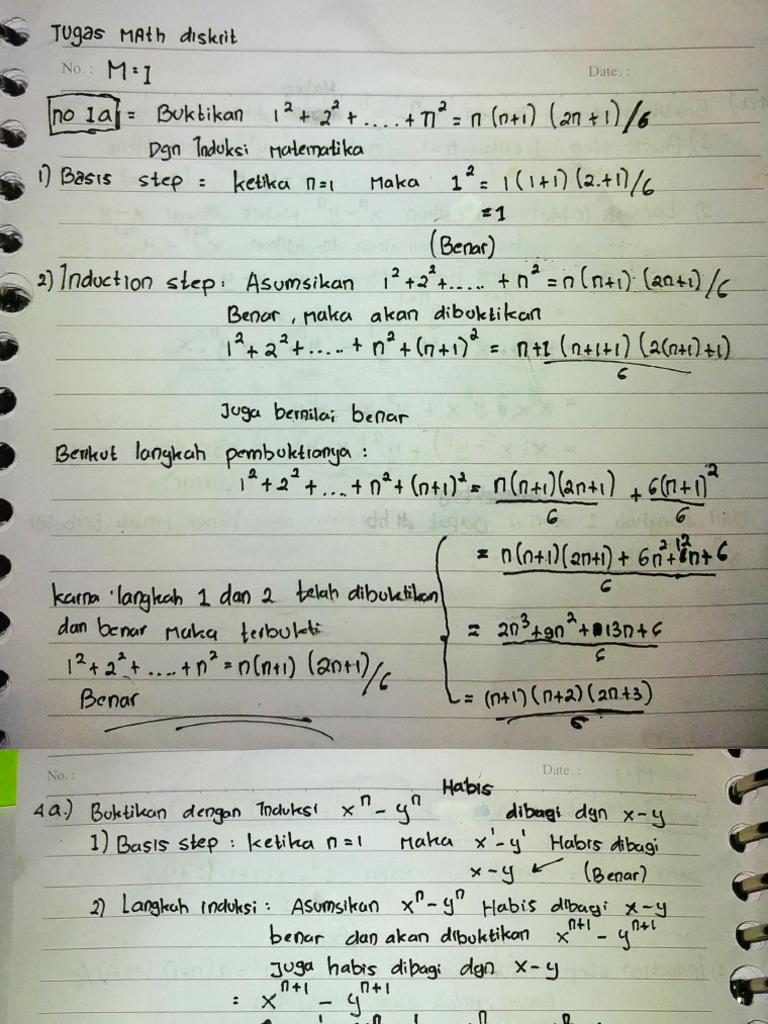 Tugas MAth diskrit
No.: M:1 Date.:
no 1a = Buktikan 1² + 2² + ..... + n² = n (n+1) (2n + 1)/6
Dgn Induksi Matematika
1) Basis step = ketika n=1 Maka 1² = 1(1+1)(2.+1)/6
=1
(Benar)
2) Induction step: Asumsikan 1²+2²+..... + n² = n(n+1) (2n+1)/6
Benar, Maka akan dibuktikan
1²+2²+.....+ n²+(n+1)² = n+1 (n+1+1) (2(n+1)+1)
6
Juga bernilai benar
Berikut langkah pembuktianya :
1²+2²+ .... + n²+(n+1)² = n(n+1)(2n+1) + 6(n+1)²
6 6
= n(n+1)(2n+1) + 6n²+12n+6
6
karna langkah 1 dan 2 telah dibuktikan
dan benar Maka terbukti
= 2n³+9n²+13n+6
6
1²+2²+ ....+n²=n(n+1) (2n+1)/6
Benar
= (n+1)(n+2)(2n+3)
6
No.: Date.:
4a.) Buktikan dengan Induksi xⁿ - yⁿ Habis dibagi dgn x-y
1) Basis step : ketika n=1 Maka x¹-y¹ Habis dibagi
x-y ↙ (Benar)
2) Langkah induksi : Asumsikan xⁿ-yⁿ Habis dibagi x-y
benar dan akan dibuktikan xⁿ⁺¹ - yⁿ⁺¹
Juga habis dibagi dgn x-y
= xⁿ⁺¹ - yⁿ⁺¹